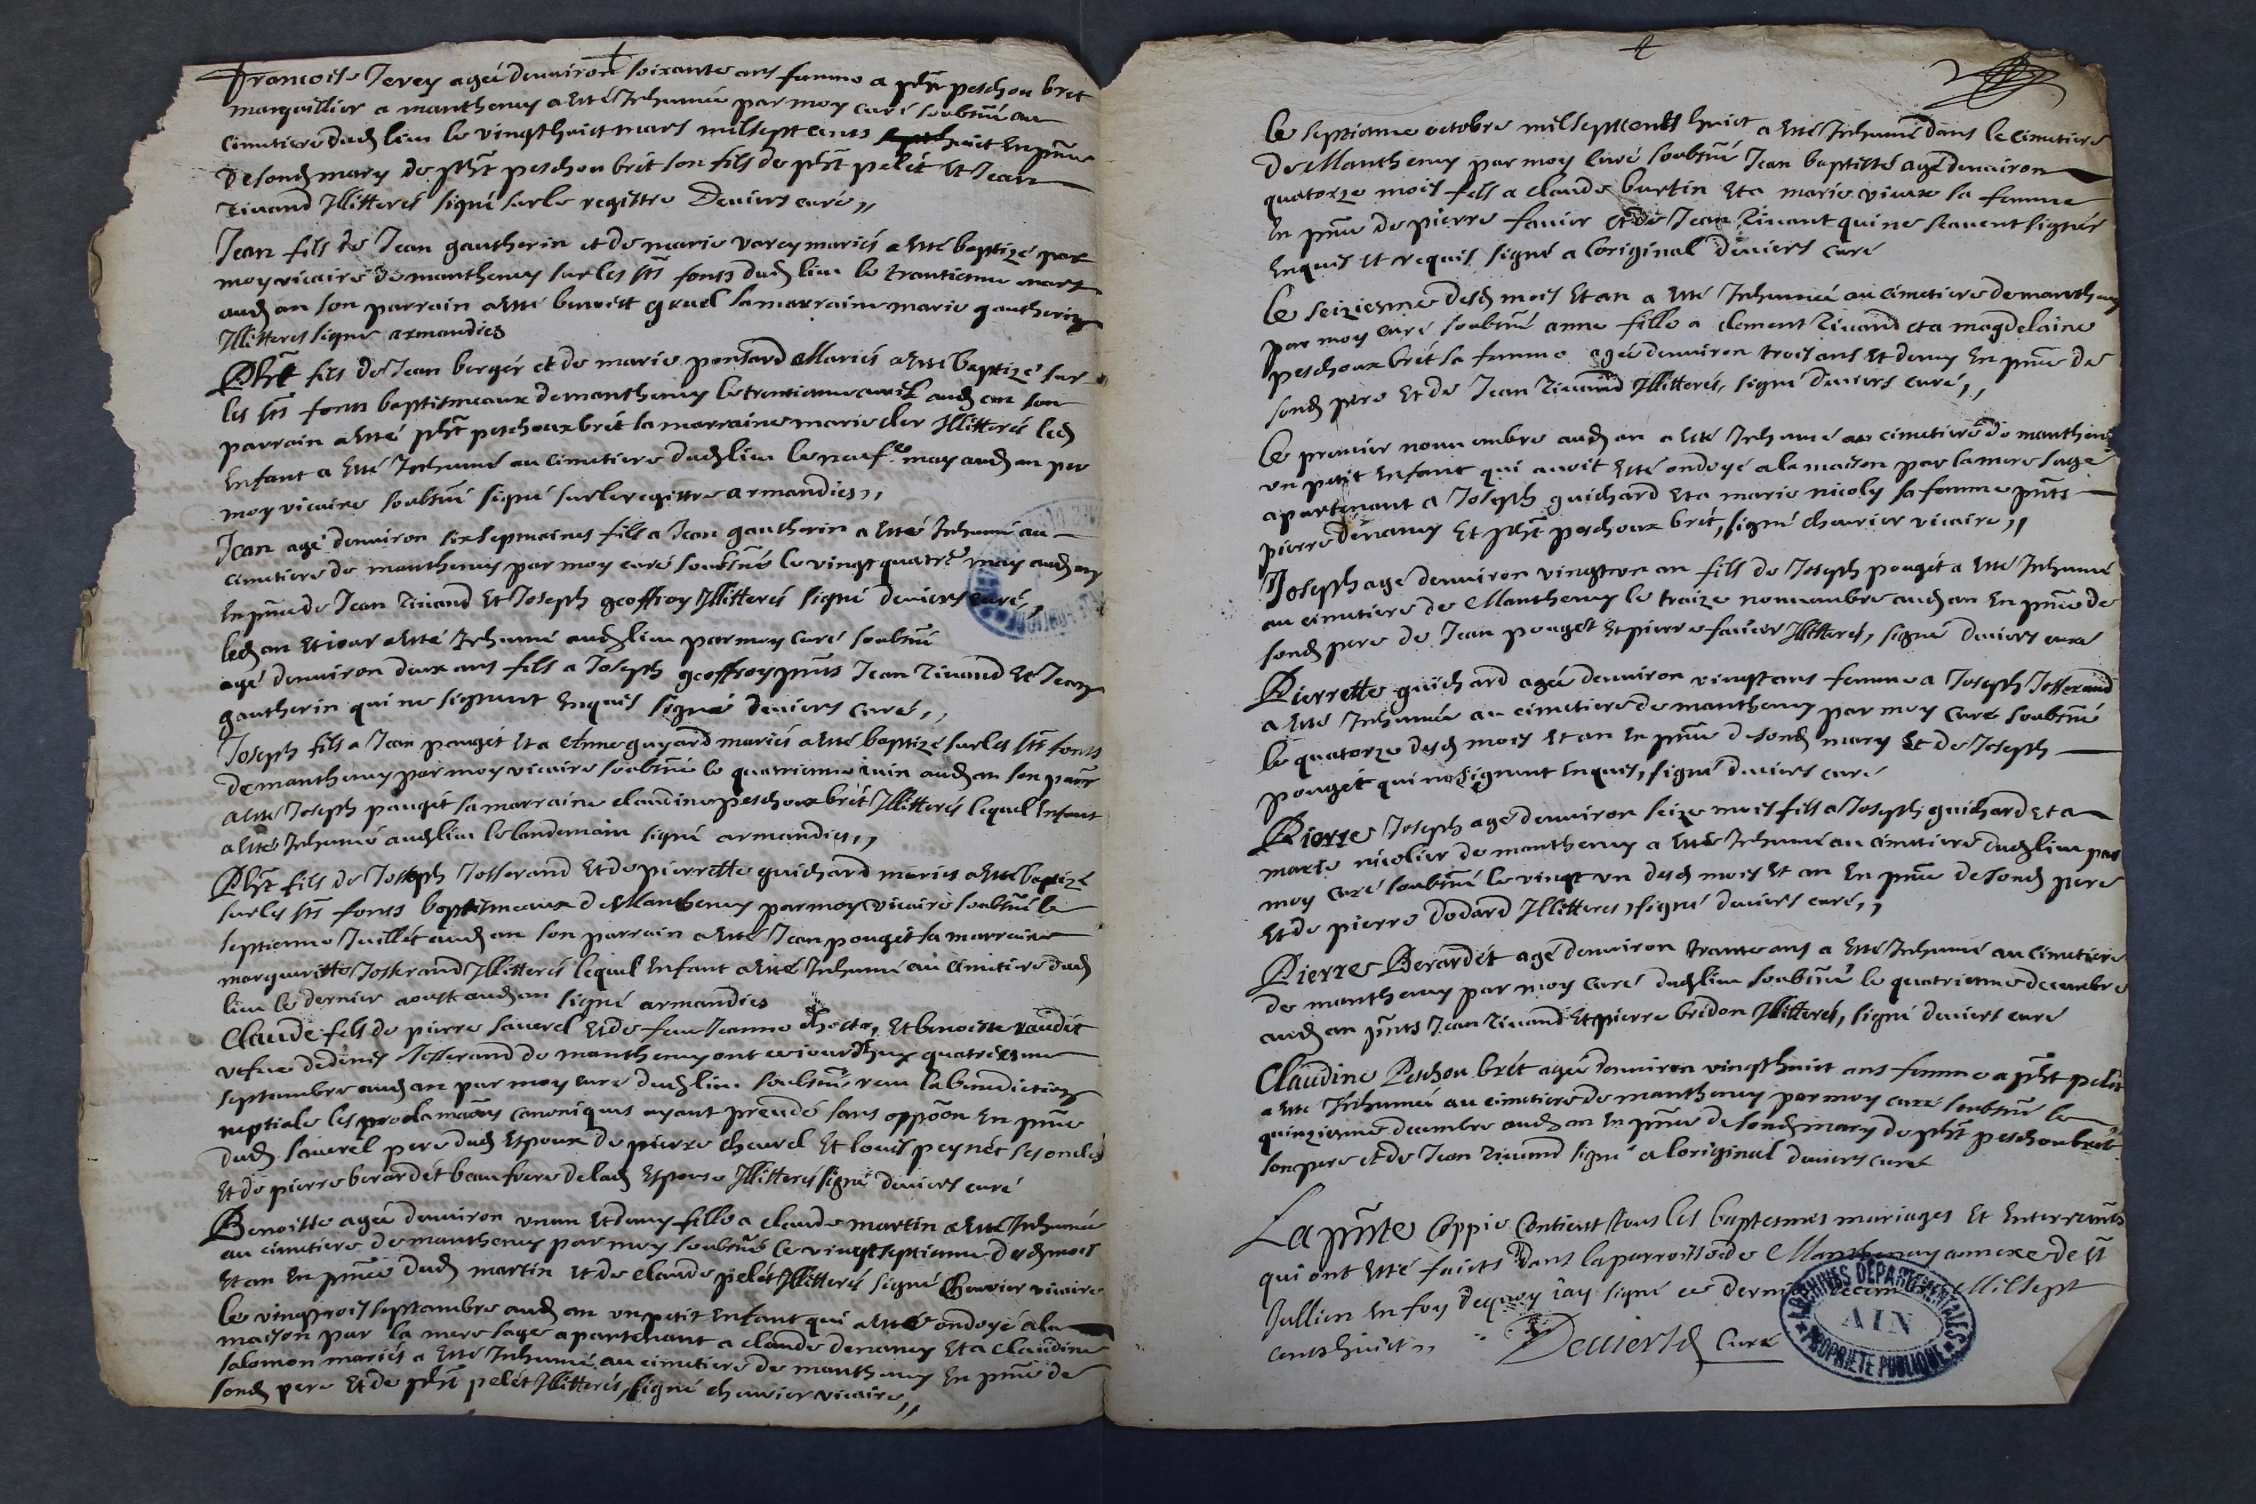 Francoise Jerey ageé denuiron soixante ans femme a phĩt peschou bret
marguillier a manthenay a esté Inhumeé par moy curé soubsné au
cimetiere dud lieu le vingthuict mars mil sept cents huict En pñce
de sond mary de phĩt peschou brét son fils de phĩt pelét Et Jean
Riuand Illitterés signé sur le registre Deuiers curé,,
Jean fils de Jean gautherin et de marie varey mariés a esté baptizé par
moy vicaire de manthenay sur les sts fonts dud lieu le trantieme mars
aud an son parrain a esté benoitt gruel la marraine marie gautherin
Illitteres signé armandies
Phĩt fils de Jean bergér et de marie ponsard Mariés a esté baptizé sur
les sts fonts baptismeaux de manthenay le trentieme auril aud an son
parrain a esté phĩt peschoux brét la marraine marie cler Illitterés led
Enfant a Esté Inhumé au cimetiere dud lieu le neuf.e may aud an par
moy vicaire soubsné signé sur le registre armandies,,
Jean agé denuiron six sepmaines fils a Jean gautherin a esté Inhumé au
cimetiere de manthenay par moy curé soubsné le vingt quatre may aud an
En pñce de Jean Riuand Et Joseph geoffroy Illitterés signé deuiers curé,,
led an Et iour a esté Inhumé aud lieu par moy curé soubsné
agé denuiron deux ans fils a Joseph geoffroy pñts Jean Riuand Et Jean
gautherin qui ne signent Enquis signé deuiers curé,,
Joseph fils a Jean pougét Et a Anne guyard mariés a esté baptizé sur les sts fonts
de manthenay par moy vicaire soubsné le quatrieme iuin aud an son parr
a esté Joseph pougét sa marraine claudine peschoux brét Illitterés lequel Enfant
a esté Inhumé aud lieu le landemain signé armandies,,
Phĩt fils de Joseph Josserand Et de pierrette guichard mariés a esté baptizé
sur les sts fonts baptismeaux de Manthenay par moy vicaire soubsné le
septieme Juillét aud an son parrain a esté Jean pougét sa marraine
margueritte Josserand Illitterés lequel Enfant a esté Inhumé au cimetiere dud
lieu le dernier aoust aud an signé armandies
Claude fils de pierre sauerel Et de feue Jeanne Et benoiste raudét
vefue de denis Josserand de manthenay ont ce iourdhuy quatriesme
septembre aud an par moy curé dud lieu soubsné receu la benediction
nuptiale les proclamaõns canoniques ayant precedé sans opposõn En pñce
dud sauerel pere dud Espoux de pierre cheurel Et louis peynét ses oncles
Et de pierre berardét beaufrere de lad Espouse Illitterés signé deuiers curé
Benoitte ageé denuiron vn an Et demy fille a claude martin a esté Inhumeé
au cimetiere de manthenay par moy soubsné le vingt septieme dud mois
Et an En pñce dud martin Et de claude pelét Illitterés signé Cheurier vicaire
le vingtrois septembre aud an vn petit Enfant qui a esté ondoyé a la
maison par la mere sage apartenant a claude denamy Et a claudine
salomon mariés a Esté Inhumé au cimetiere de manthenay En pñce de
sond pere Et de phĩt pelét Illitterés, signé cheurier vicaire,,
le septieme octobre mil sept cents huict a esté Inhumé dans le cimetiere
de Manthenay par moy curé soubsné Jean baptiste agé denuiron
quatorze mois fils a claude burtin Et a marie viuax sa femme
En pñce de pierre fauier Et de Jean Riuant qui ne scauent signer
Enquis Et requis signé a loriginal deuiers curé
le seiziesme desd mois Et an a esté Inhumeé au cimetiere de manthenay
par moy curé soubsné anne fille a clement Riuand et a magdelaine
peschoux brét sa femme ageé denuiron trois ans Et demy En pñce de
sond pere Et de Jean Riuand Illitterés, signé deuiers curé,,
le premier nouuembre aud an a esté Inhumé au cimetiere de manthenay
vn petit Enfant qui auoit Esté ondoyé a la maison par la mere sage
apartenant a Joseph guichard Et a marie nicoly sa femme pñts
pierre denamy Et phĩt peschoux brét, signé cheurier vicaire,,
Joseph agé denuiron vingt vn an fils de Joseph pougét a esté Inhumé
au cimetiere de Manthenay le traize nouuembre aud an En pñce de
sond pere de Jean pougét Et pierre fauier Illitterés, signé deuiers curé
Pierrette guichard ageé denuiron vingt ans femme a Joseph Josserand
a esté Inhumeé au cimetiere de manthenay par moy Curé soubsné
le quatorze desd mois Et an En pñce de sond mary Et de Joseph
pougét qui ne signent Enquis, signé deuiers curé
Pierre Joseph agé denuiron seize mois fils a Joseph guichard Et a
marie nicolier de manthenay a esté Inhumé au cimetiere dud lieu par
moy curé soubsné le vingt vn desd mois Et an En pñce de sond pere
Et de pierre dodard Illitteres, signé deuiers curé,,
Pierre Berardét agé denuiron trante ans a Esté Inhumé au cimetiere
de manthenay par moy Curé dud lieu soubsné le quatrieme decembre
aud an pñts Jean Riuand Et pierre bridon Illitterés, signé deuiers curé
Claudine Peschou brét ageé denuiron vingthuict ans femme a phĩt pelét
a esté Inhumeé au cimetiere de manthenay par moy curé soubsné le
quinziesme decembre aud an En pñce de sond mary de phĩt peschou brét
son pere et de Jean Riuand signé a loriginal deuiers curé
La pñte Coppie Contient tous les baptesmes mariages Et Enterremts
qui ont esté faicts dans la parroisse de Manthenay annexe de St
Jullien En foy dequoy iay signé ce dernier decem Mil sept
cents huict,, Deuiers Curé
ARCHIVES DEPARTEMENTALES
AIN
PROPRIETE PUBLIQUE